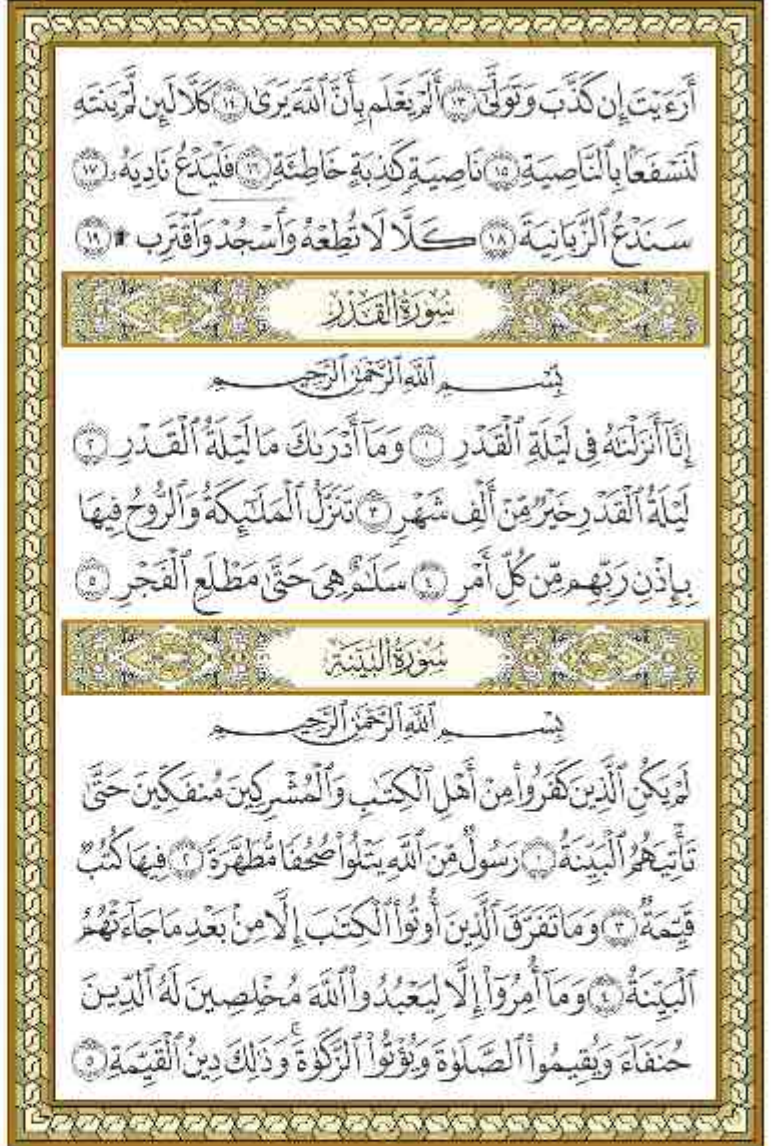 أَرَءَيْتَ إِن كَذَّبَ وَتَوَلَّىٰٓ ١٣ أَلَمْ يَعْلَم بِأَنَّ ٱللَّهَ يَرَىٰ ١٤ كَلَّا لَئِن لَّمْ يَنتَهِ
لَنَسْفَعًۢا بِٱلنَّاصِيَةِ ١٥ نَاصِيَةٍ كَٰذِبَةٍ خَاطِئَةٍ ١٦ فَلْيَدْعُ نَادِيَهُۥ ١٧
سَنَدْعُ ٱلزَّبَانِيَةَ ١٨ كَلَّا لَا تُطِعْهُ وَٱسْجُدْ وَٱقْتَرِب ۩ ١٩
سُورَةُ القَدْرِ
بِسْمِ ٱللَّهِ ٱلرَّحْمَٰنِ ٱلرَّحِيمِ
إِنَّآ أَنزَلْنَٰهُ فِى لَيْلَةِ ٱلْقَدْرِ ١ وَمَآ أَدْرَىٰكَ مَا لَيْلَةُ ٱلْقَدْرِ ٢
لَيْلَةُ ٱلْقَدْرِ خَيْرٌ مِّنْ أَلْفِ شَهْرٍ ٣ تَنَزَّلُ ٱلْمَلَٰٓئِكَةُ وَٱلرُّوحُ فِيهَا
بِإِذْنِ رَبِّهِم مِّن كُلِّ أَمْرٍ ٤ سَلَٰمٌ هِىَ حَتَّىٰ مَطْلَعِ ٱلْفَجْرِ ٥
سُورَةُ البَيِّنَةِ
بِسْمِ ٱللَّهِ ٱلرَّحْمَٰنِ ٱلرَّحِيمِ
لَمْ يَكُنِ ٱلَّذِينَ كَفَرُوا۟ مِنْ أَهْلِ ٱلْكِتَٰبِ وَٱلْمُشْرِكِينَ مُنفَكِّينَ حَتَّىٰ
تَأْتِيَهُمُ ٱلْبَيِّنَةُ ١ رَسُولٌ مِّنَ ٱللَّهِ يَتْلُوا۟ صُحُفًا مُّطَهَّرَةً ٢ فِيهَا كُتُبٌ
قَيِّمَةٌ ٣ وَمَا تَفَرَّقَ ٱلَّذِينَ أُوتُوا۟ ٱلْكِتَٰبَ إِلَّا مِنۢ بَعْدِ مَا جَآءَتْهُمُ
ٱلْبَيِّنَةُ ٤ وَمَآ أُمِرُوٓا۟ إِلَّا لِيَعْبُدُوا۟ ٱللَّهَ مُخْلِصِينَ لَهُ ٱلدِّينَ
حُنَفَآءَ وَيُقِيمُوا۟ ٱلصَّلَوٰةَ وَيُؤْتُوا۟ ٱلزَّكَوٰةَ ۚ وَذَٰلِكَ دِينُ ٱلْقَيِّمَةِ ٥